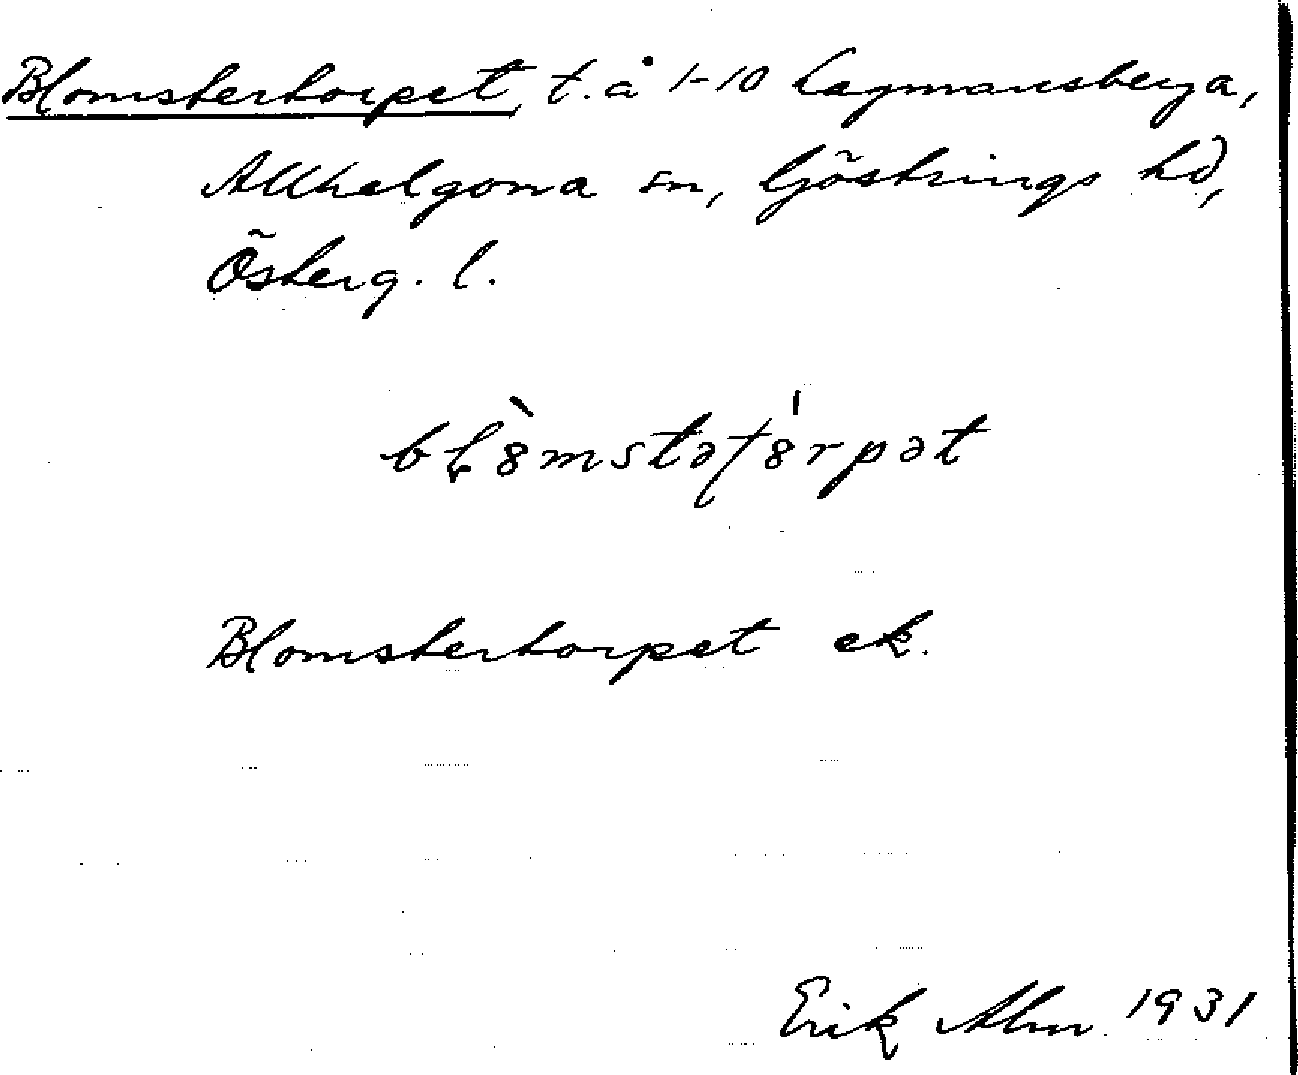 Blomstertorpet, t. å 1-10 Lagmansberga,
Allhelgona sn, Göstrings hd,
Österg. l.
Blomstertorpet ek.
Erik Alm. 1931